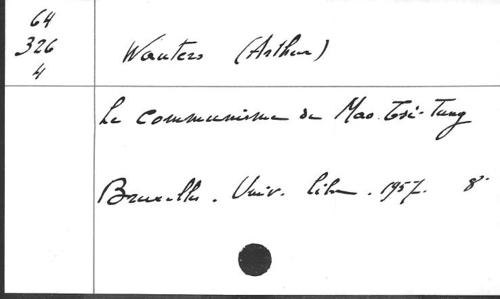 64
326
4
Wauters (Arthur)
Le communisme de Mao. Tsé-Tung
Bruxelles. Univ. libre. 1957. 8°